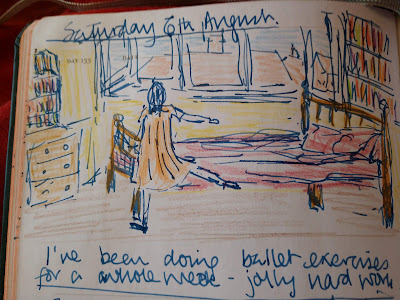 Saturday 6th August.
DAY 155
I've been doing ballet exercises
for a whole week - jolly hard work